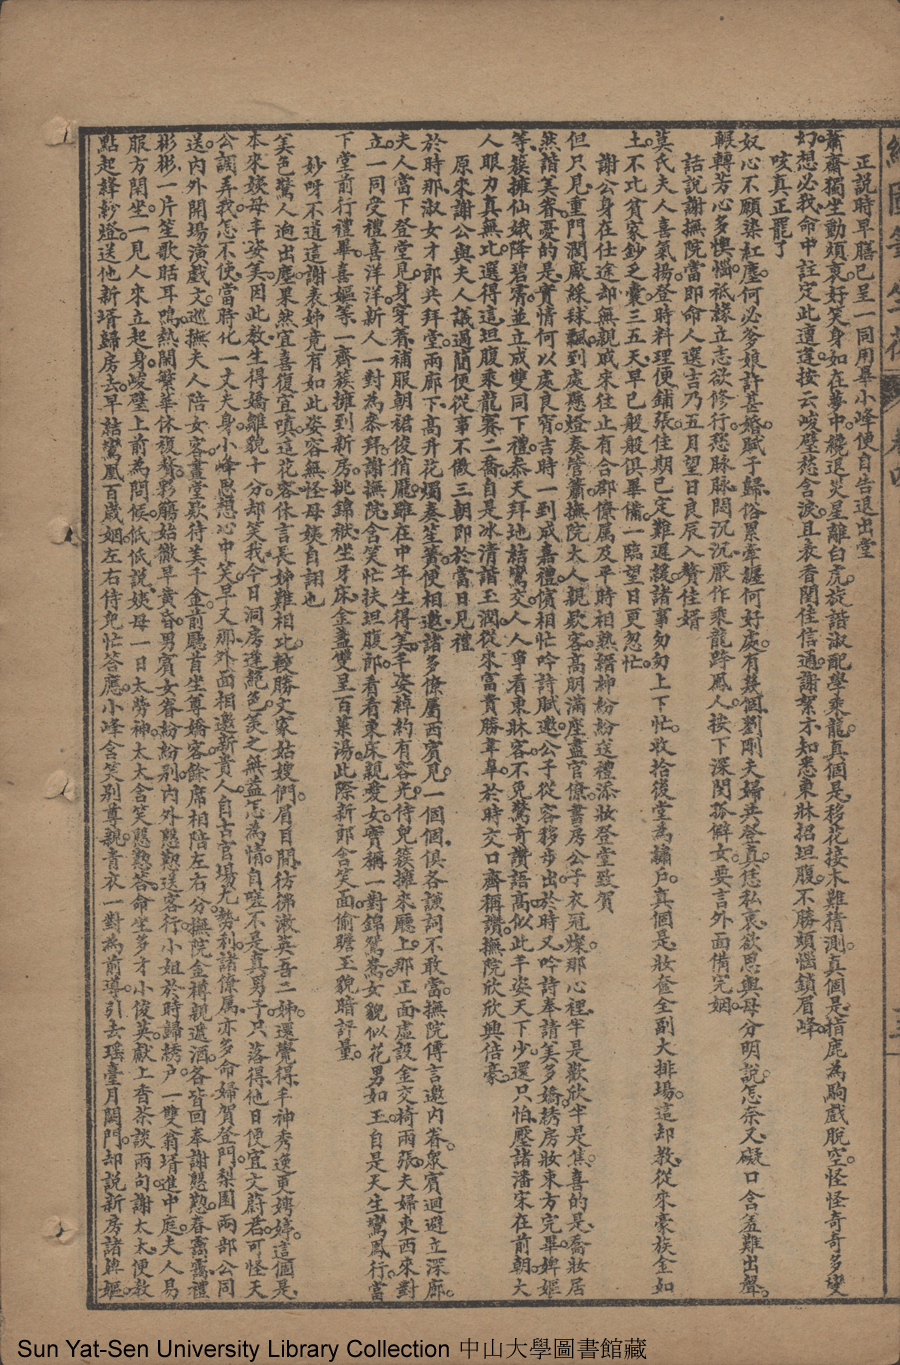 繪圖筆生花 卷四
正說時早膳已呈一同用畢小峰便自告退出堂
蕭齋獨坐動煩衷好笑身如在夢中纔退災星離白虎旋諧淑配學乘龍真個是移花接木難猜測真個是指鹿為駒戲脫空怪怪奇奇多變
幻想必我命中註定此遭逢按云峻壁愁含淚且表香閨佳信通謝絮才知悉東牀招坦腹不勝煩惱鎖眉峰
咳真正罷了
奴心不願染紅塵何必爹娘許甚婚賦子歸俗累牽纏何好處有幾個劉剛夫婦共登真恁私衷欲思與母分明說怎奈又礙口含羞難出聲
輾轉芳心多懊惱祗緣立志欲修行愁脉脉悶沉沉厭作乘龍跨鳳人按下深閨孤僻女要言外面備完姻
話說謝撫院當即命人選吉乃五月望日良辰入贅佳婿
莫氏夫人喜氣揚登時料理便鋪張佳期已定難遲緩諸事匆匆上下忙收拾後堂為繡戶真個是妝奩全副大排場這却教從來豪族金如
土不比貧家鈔乏囊三五天早已般般俱畢備一臨望日更忽忙
謝公身在仕途却無親戚來往止有合郡僚屬及平時相熟縉紳紛紛送禮添妝登堂致賀
但只見重門潤廠綵毬飄到處懸燈奏管簫撫院大人親欵客高朋滿座盡官僚書房公子衣冠燦那心裡半是歡欣半是焦喜的是喬妝居
然諧美眷憂的是實情何以處良宵吉時一到成嘉禮儐相忙吟詩賦邀公子從容移步出於時又吟詩奉請美多嬌綉房妝束方完畢婢嫗
等簇擁仙娥降碧霄並立成雙同下禮恭天拜地結鸞交人人爭看東牀客不免驚奇讚語高似此丰姿天下少還只怕壓諸潘宋在前朝大
人眼力真無比選得這坦腹乘龍賽二喬自是冰清諧玉潤從來富貴勝韋皐於時交口齊稱讚撫院欣欣興倍豪
原來謝公與夫人議過簡便從事不做三朝即於當日見禮
於時那淑女才郎共拜堂兩廊下高升花燭奏笙簧便相邀諸多僚屬西賓見一個個俱各謙詞不敢當撫院傳言邀內眷衆賓迴避立深廊
夫人當下登堂見身穿着補服朝裙俊俏龐雖在中年生得美丰姿綽約有容光侍兒簇擁來廳上那正面虛設金交椅兩張夫婦東西來對
立一同受禮喜洋洋新人一對為恭拜謝撫院含笑忙扶坦腹郎看看東床親愛女實稱一對錦鴛鴦女貌似花男如玉自是天生鸞鳳行當
下堂前行禮畢喜嫗等一齊簇擁到新房挑錦袱坐牙床金盞雙呈百菓湯此際新郎含笑面偷瞻玉貌暗評量
妙呀不道這謝表姊竟有如此姿容無怪母姨自詡也
美色驚人迥出塵果然宜喜復宜嗔這花容休言長姊難相比較勝文家姑嫂們眉目間彷彿漱英吾二姊還覺得丰神秀逸更娉婷這個是
本來姨母丰姿美因此教生得嬌雛貌十分却笑我今日洞房逢絕色羨之無益怎為情自嗟不是真男子只落得他日便宜文蔚君可怪天
公調弄我怎不使當時化一丈夫身小峰思想心中笑早又那外面相邀新貴人自古官場尤勢利諸僚屬亦多命婦賀登門梨園兩部公同
送內外開場演戲文巡撫夫人陪女客畫堂欵待美千金前廳首坐尊嬌客餘席相陪左右分撫院金樽親遞酒各皆回奉謝慇懃春靄靄禮
彬彬一片笙歌聒耳鳴熱鬧繁華休複贅夥觴始徹早黃昏男賓女眷紛紛別內外慇懃送客行小姐於時歸綉户一雙翁壻進中庭夫人易
服方閒坐一見人來立起身峻壁上前為問候低低說姨母一日太勞神太太含笑慇懃答命坐多才小俊英獻上香茶談兩句謝太太便教
點起絳紗燈送他新壻歸房去早結鸞凰百歲姻左右侍兒忙答應小峰含笑別尊親青衣一對為前導引去瑶臺月闕門却說新房諸婢嫗
Sun Yat-Sen University Library Collection 中山大學圖書館藏